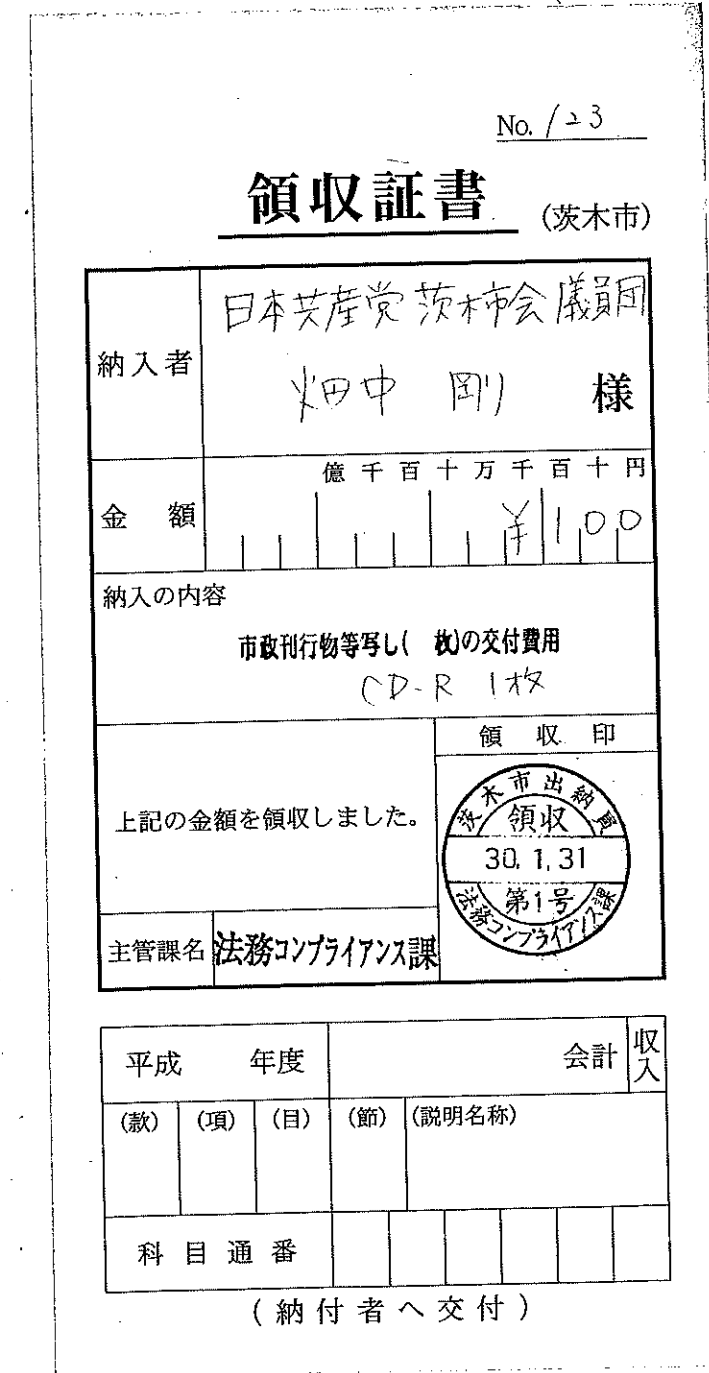 No. 123
領収証書 (茨木市)
納入者
日本共産党茨木市会議員団
畑中 剛 様
億千百十万千百十円
金額 ¥100
納入の内容
市政刊行物等写し( 枚)の交付費用
CD-R 1枚
領収印
上記の金額を領収しました。
茨木市出納員
領収
30.1.31
第1号
法務コンプライアンス課
主管課名 法務コンプライアンス課
平成 年度 会計 収入
(款) (項) (目) (節) (説明名称)
科目通番
(納付者へ交付)